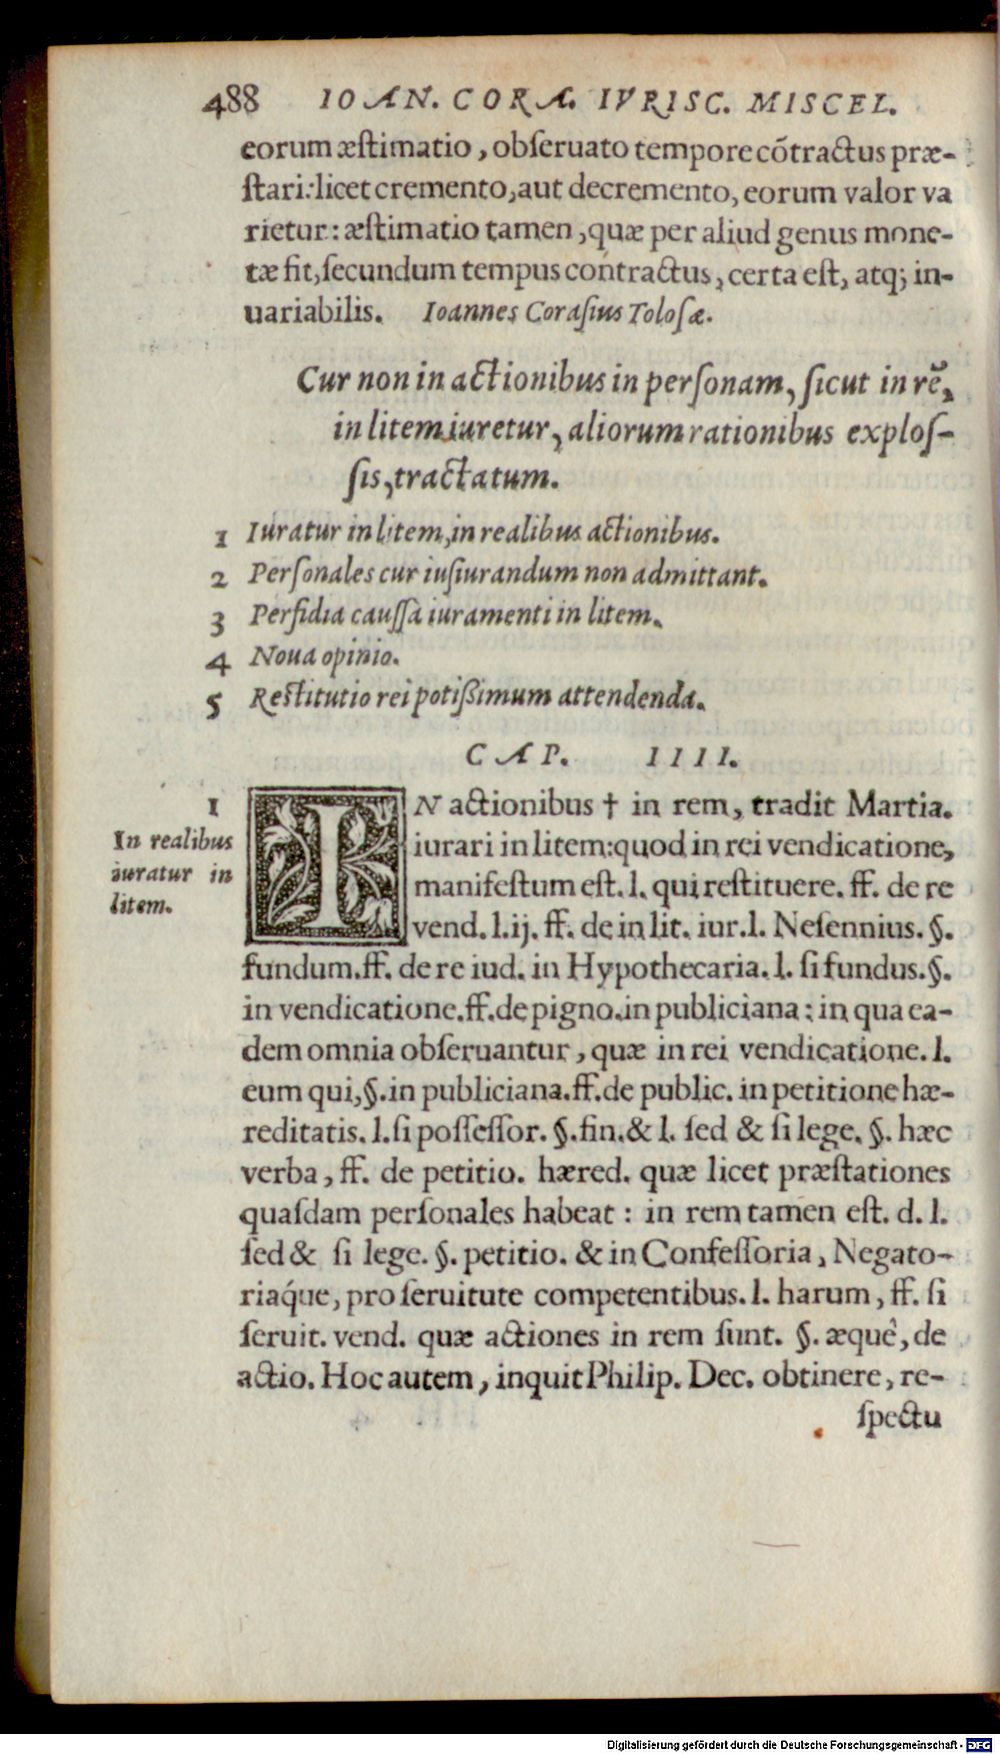 488 IOAN. CORA. IVRISC. MISCEL.
eorum æstimatio, obſeruato tempore cõtractus præ-
ſtari: licet cremento, aut decremento, eorum valor va
rietur: æſtimatio tamen, quæ per aliud genus mone-
tæ fit, ſecundum tempus contractus, certa eſt, atq; in-
uariabilis. Ioannes Coraſius Toloſæ.
Cur non in actionibus in perſonam, ſicut in rẽ,
in litem iuretur, aliorum rationibus exploſ-
ſis, tractatum.
1 Iuratur in litem, in realibus actionibus.
2 Perſonales cur iuſiurandum non admittant.
3 Perfidia cauſſa iuramenti in litem.
4 Noua opinio.
5 Reſtitutio rei potiſſimum attendenda.
CAP. IIII.
1
In realibus
iuratur in
litem.
IN actionibus † in rem, tradit Martia.
iurari in litem: quod in rei vendicatione,
manifeſtum eſt. l. qui reſtituere. ff. de re
vend. l. ij. ff. de in lit. iur. l. Neſennius. §.
fundum. ff. de re iud. in Hypothecaria. l. ſi fundus. §.
in vendicatione. ff. de pigno. in publiciana: in qua ea-
dem omnia obſeruantur, quæ in rei vendicatione. l.
eum qui, §. in publiciana. ff. de public. in petitione hæ-
reditatis. l. ſi poſſeſſor. §. fin. & l. ſed & ſi lege. §. hæc
verba, ff. de petitio. hæred. quæ licet præſtationes
quaſdam perſonales habeat: in rem tamen eſt. d. l.
ſed & ſi lege. §. petitio. & in Confeſſoria, Negato-
riáque, pro ſeruitute competentibus. l. harum, ff. ſi
ſeruit. vend. quæ actiones in rem ſunt. §. æquè, de
actio. Hoc autem, inquit Philip. Dec. obtinere, re-
ſpectu
Digitalisierung gefördert durch die Deutsche Forschungsgemeinschaft - DFG